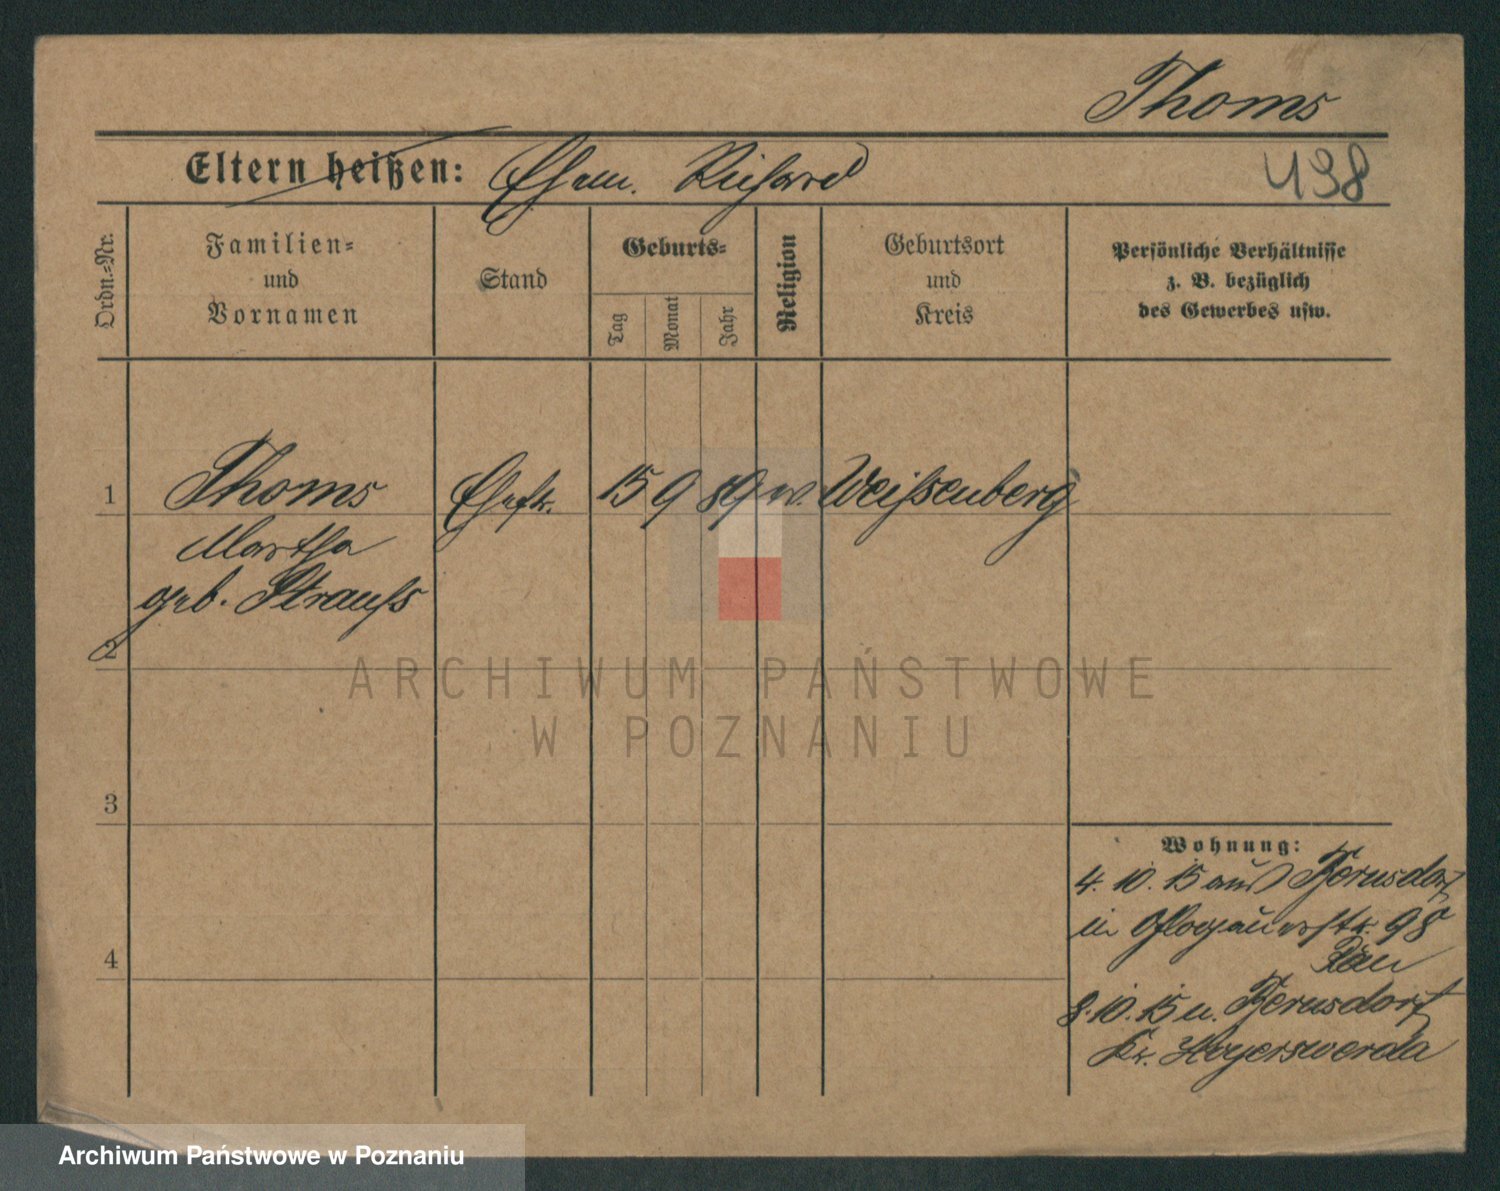 Thoms
Eltern heißen: Ehem. Richard
438
Ordn.-Nr.
Familien-
und
Vornamen
Stand
Geburts-
Tag
Monat
Jahr
Religion
Geburtsort
und
Kreis
Persönliche Verhältnisse
z. B. bezüglich
des Gewerbes usw.
1 Thoms Ehefr. 15 9 89 Weißenberg
Martha
geb. Strauß
2
ARCHIWUM PAŃSTWOWE
W POZNANIU
3
Wohnung:
4. 10. 15 aus Bernsdorf
in Glogauerstr. 98
4
8. 10. 15 n. Bernsdorf
Kr. Hoyerswerda
Archiwum Państwowe w Poznaniu